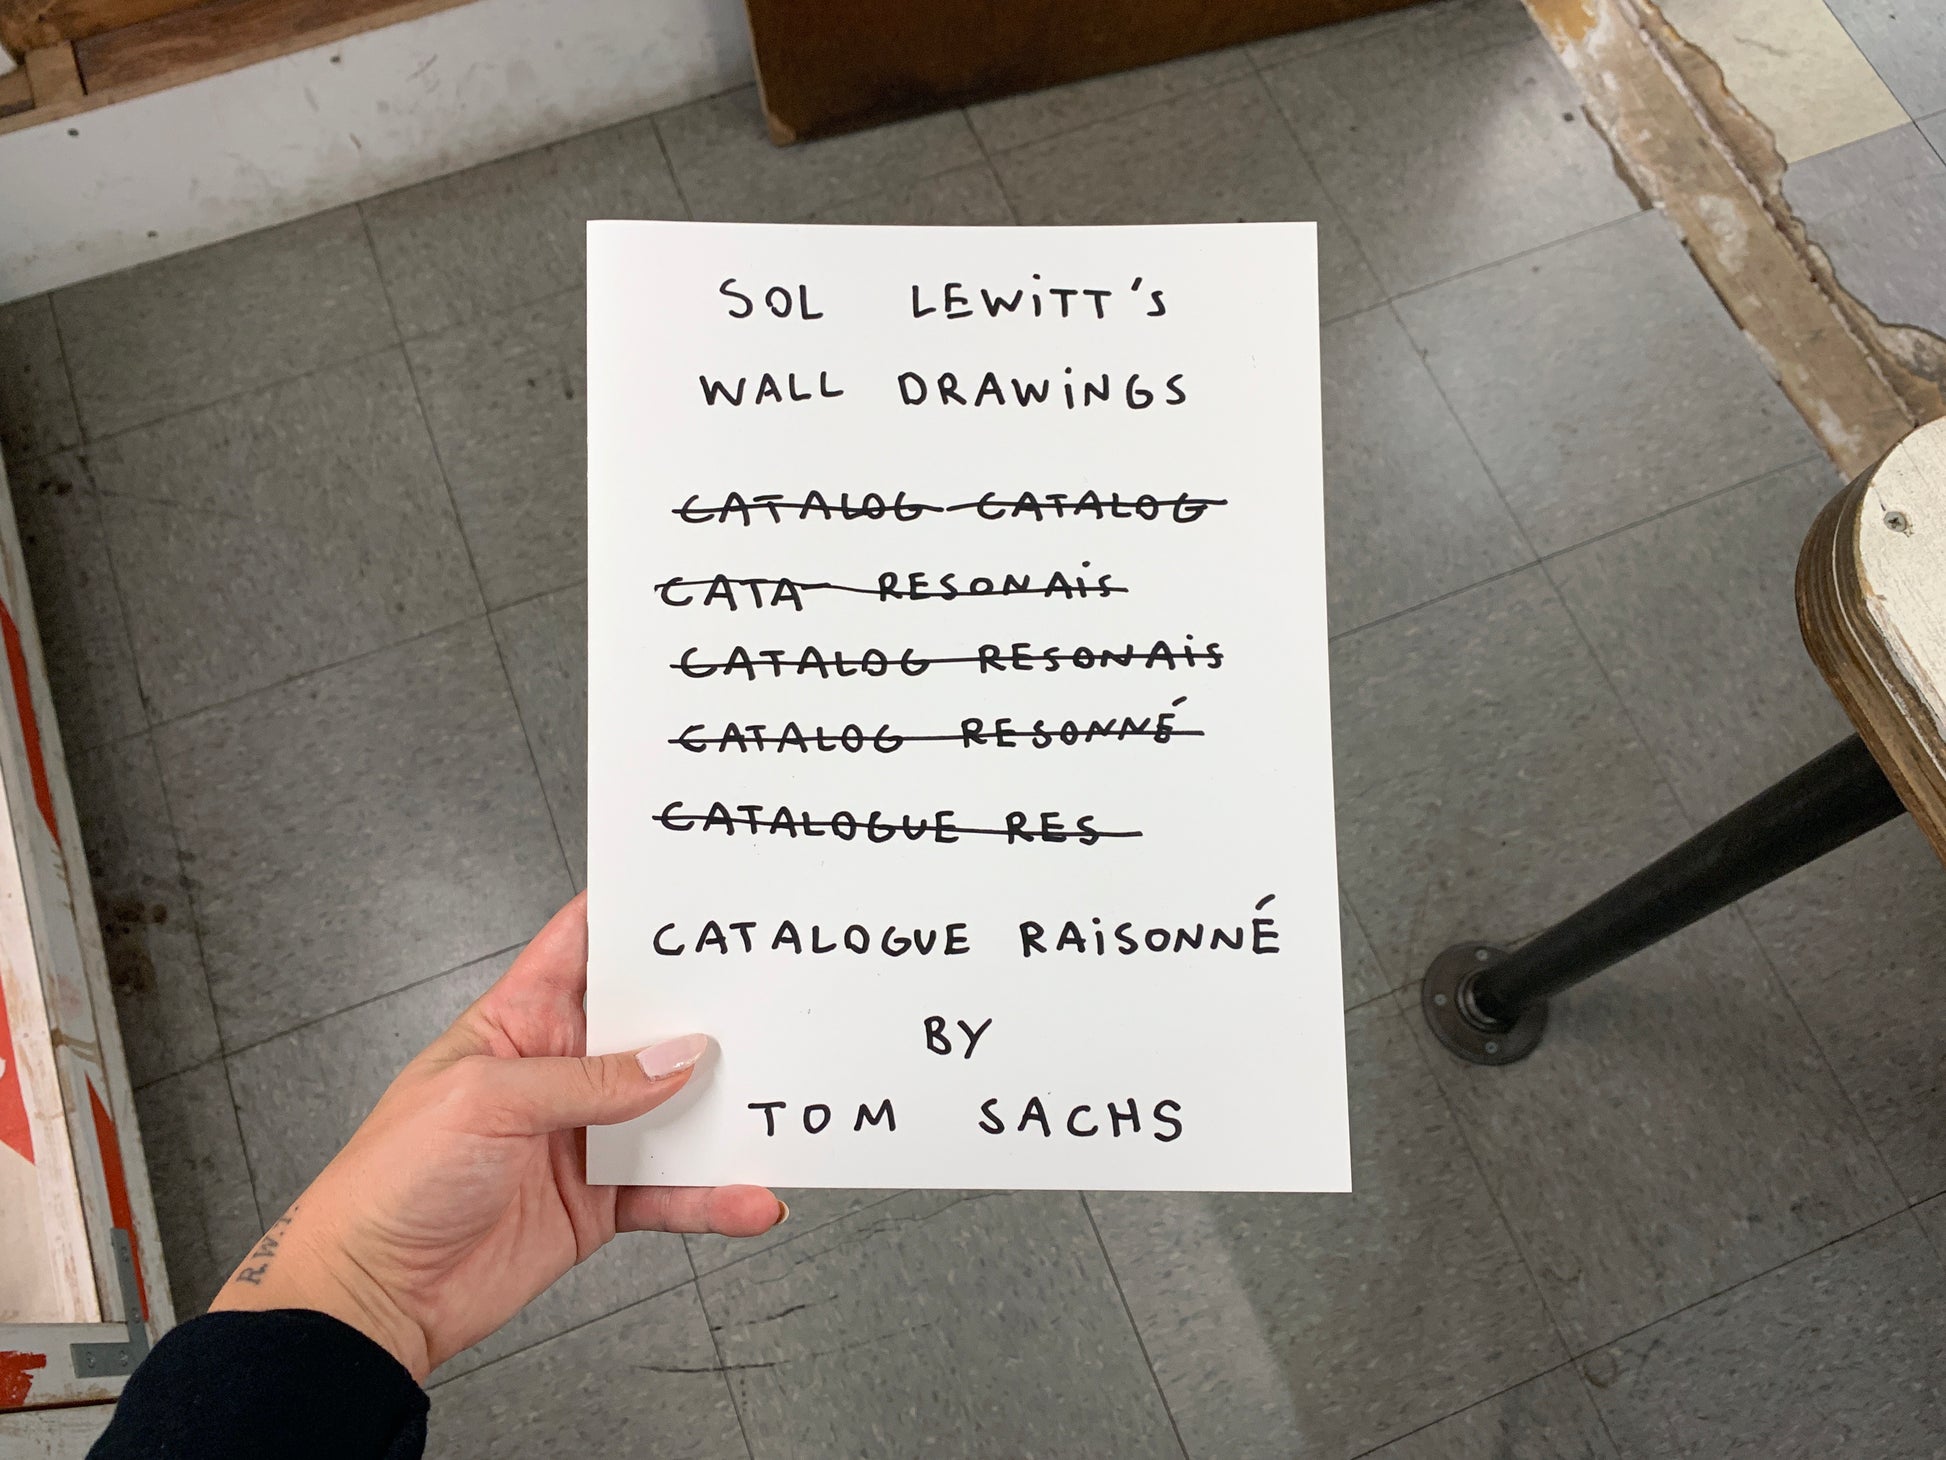 SOL LEWiTT'S
WALL DRAWiNGS
CATALOG CATALOG
CATA RESONAiS
CATALOG RESONAiS
CATALOG RESONNÉ
CATALOGUE RES
CATALOGUE RAiSONNÉ
BY
TOM SACHS